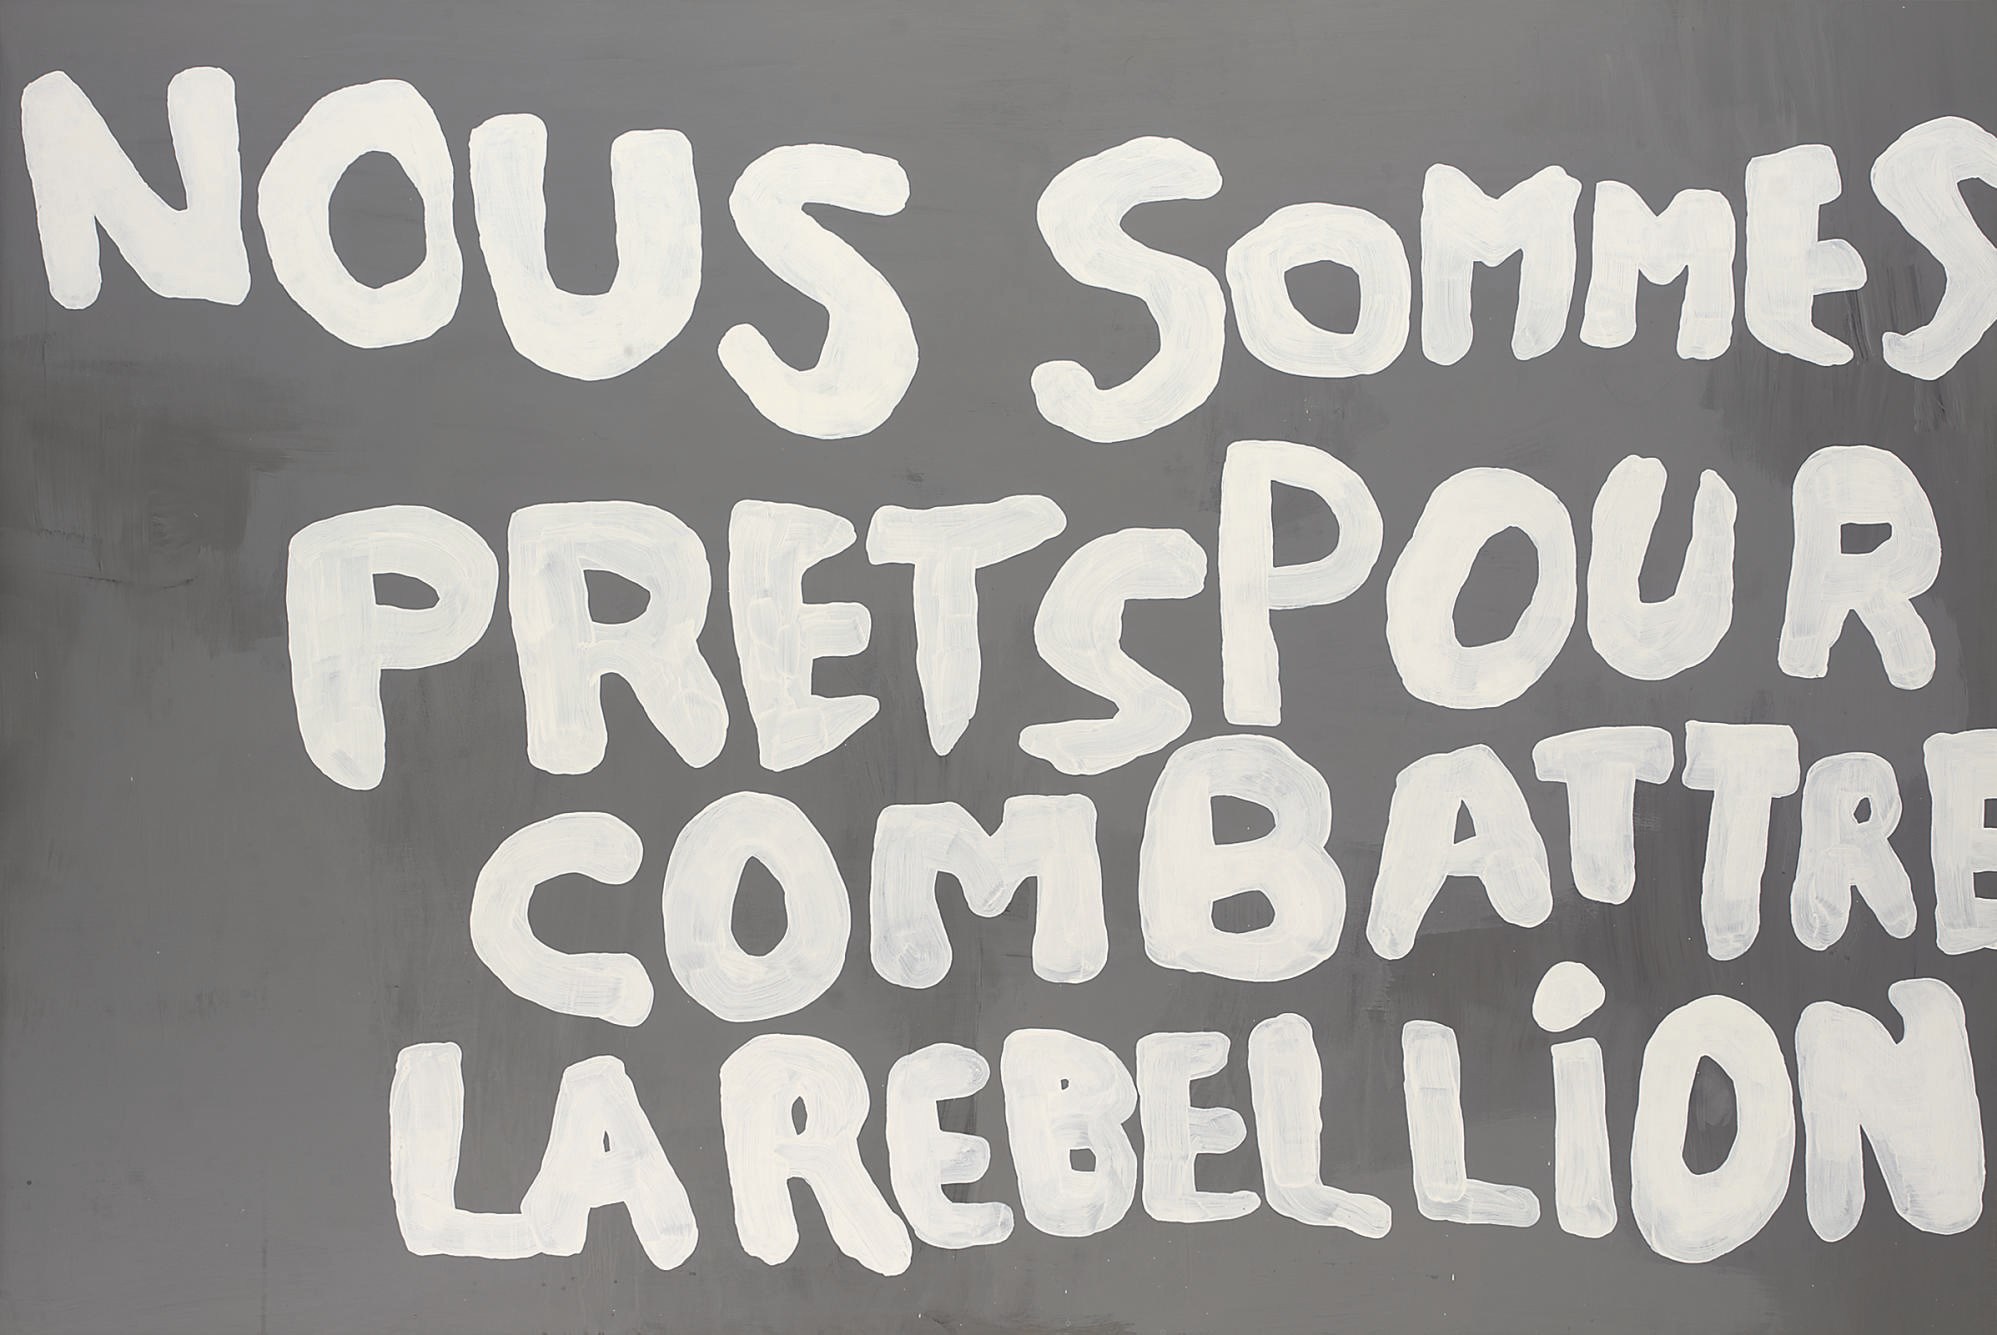 NOUS SOMMES
PRETS POUR
COMBATTRE
LA REBELLiON